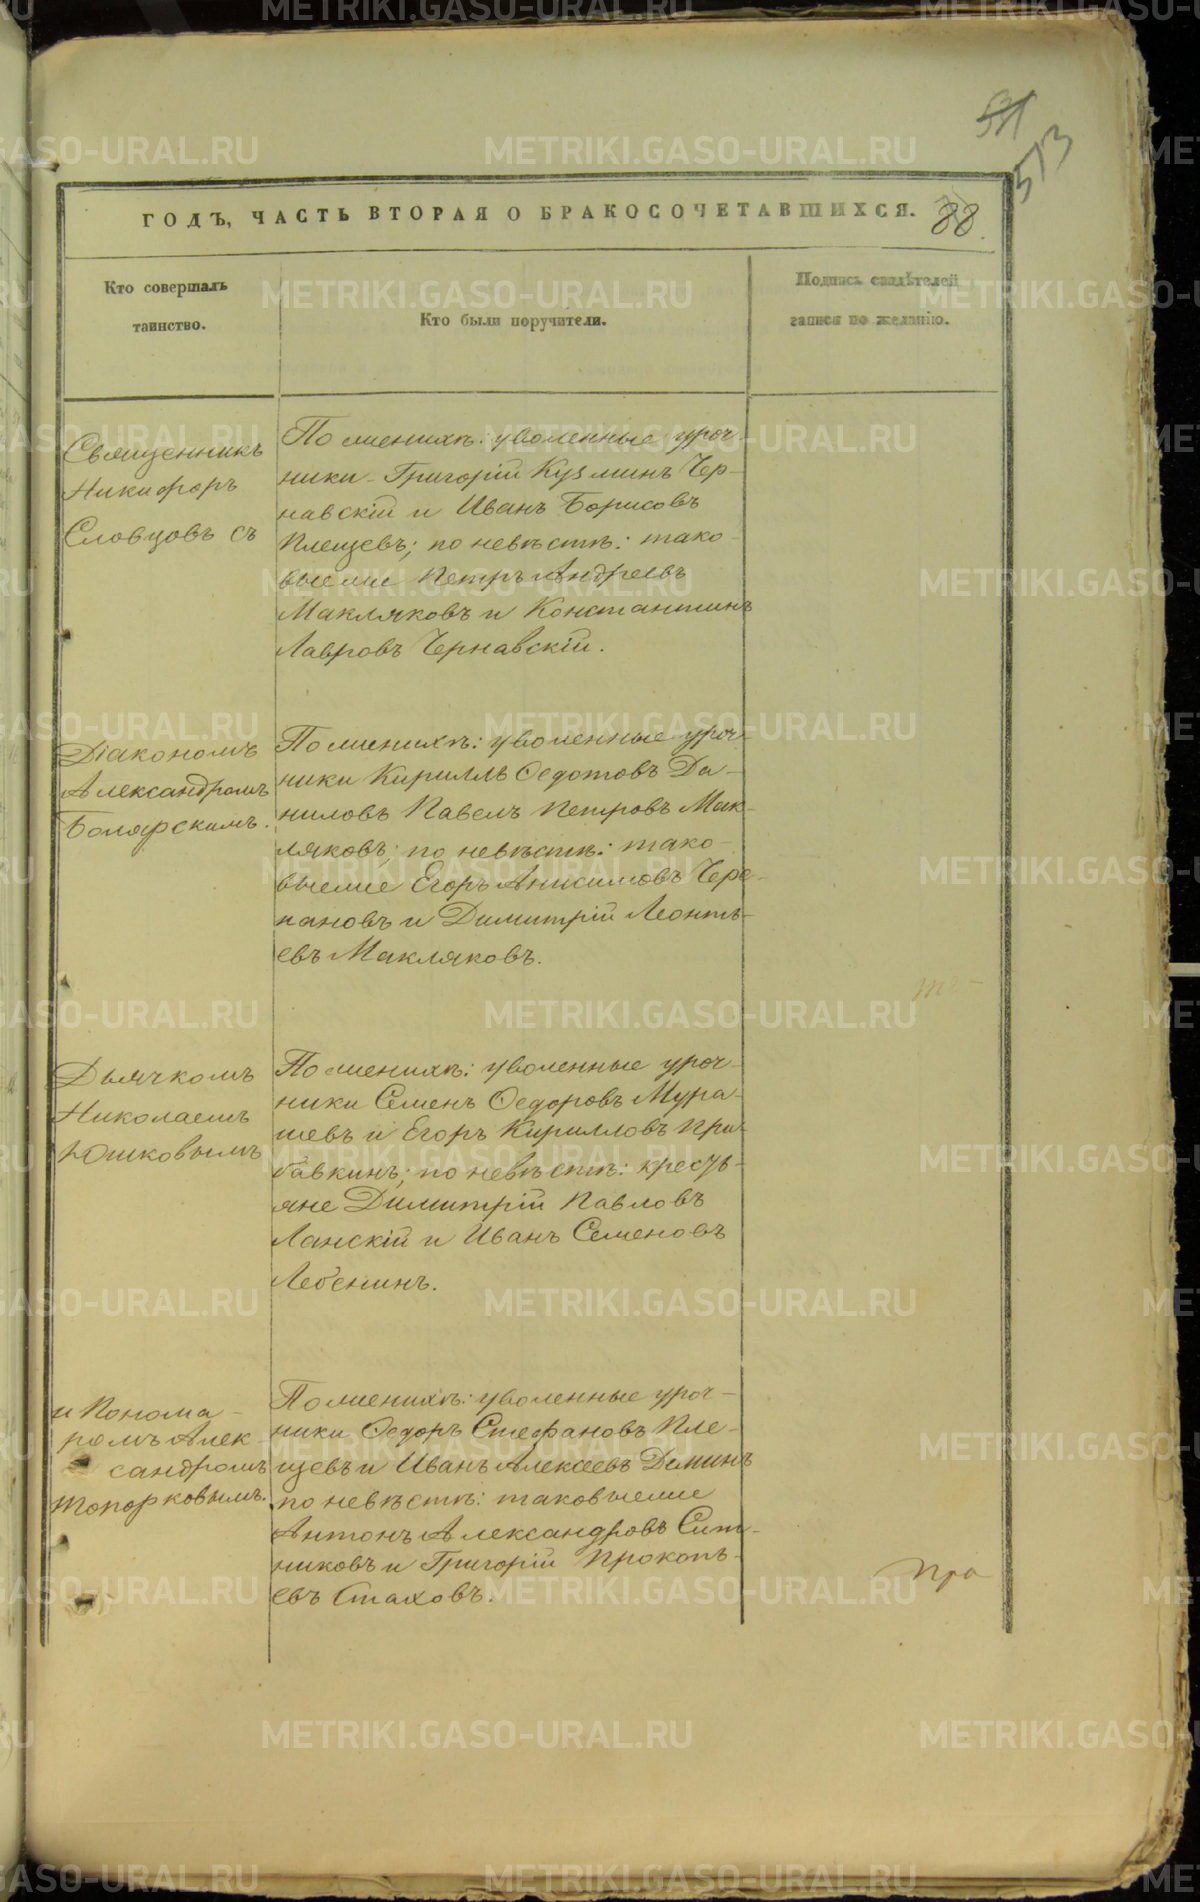 573
ГОДЪ, ЧАСТЬ ВТОРАЯ О БРАКОСОЧЕТАВШИХСЯ.
88.
Кто совершалъ
таинство.
Кто были поручители.
Подпись свидѣтелей
записи по желанію.
Священникъ
Никифоръ
Словцовъ съ
По женихѣ: уволенные уроч-
ники Григорій Кузминъ Чер-
навскій и Иванъ Борисовъ
Плещевъ; по невѣстѣ: тако-
выеже Петръ Андреевъ
Макляковъ и Константинъ
Лавровъ Чернавскій.
Діакономъ
Александромъ
Боярскимъ.
По женихѣ: уволенные уроч-
ники Кириллъ Ѳедотовъ Да-
ниловъ Павелъ Петровъ Мак-
ляковъ; по невѣстѣ: тако-
выеже Егоръ Анисимовъ Чере-
пановъ и Димитрій Леонть-
евъ Макляковъ.
Дьячкомъ
Николаемъ
Юшковымъ
По женихѣ: уволенные уроч-
ники Семенъ Ѳедоровъ Мура-
шевъ и Егоръ Кирилловъ При-
бавкинъ; по невѣстѣ: кресть-
яне Димитрій Павловъ
Ланскій и Иванъ Семеновъ
Лебенинъ.
и Понома-
ромъ Алек-
сандромъ
Топорковымъ.
По женихѣ: уволенные уроч-
ники Ѳедоръ Стефановъ Пле-
щевъ и Иванъ Алексеевъ Деминъ
по невѣстѣ: таковыеже
Антонъ Александровъ Сит-
никовъ и Григорій Прокопь-
евъ Стаховъ.
Про
METRIKI.GASO-URAL.RU